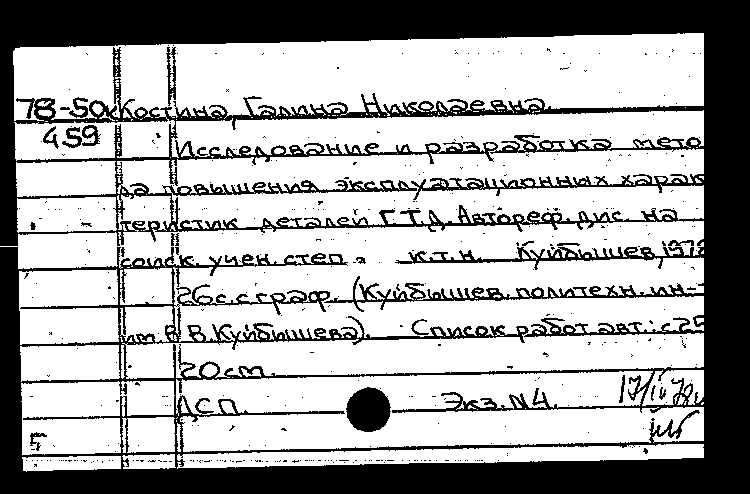 78-50к Костина, Галина Николаевна.
459
Исследование и разработка мето
да повышения эксплуатационных харак
теристик деталей Г.Т.Д. Автореф. дис. на
соиск. учен. степ. к.т.н. Куйбышев, 1978
26с. с граф. (Куйбышев. политехн. ин-т
им. В. В. Куйбышева). Список работ авт.: с 25
20 см.
ДСП. Экз. N4. 17/IV 78
5